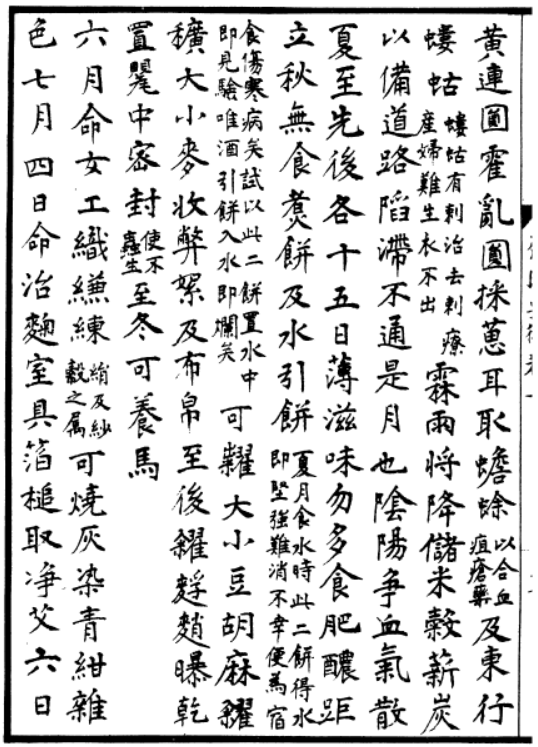 黃連圓霍亂圓採葱耳取蟾蜍以合血疽瘡藥及東行
螻蛄螻蛄有刺治去刺療產婦難生衣不出霖雨將降儲米穀薪炭
以備道路陷滯不通是月也陰陽爭血氣散
夏至先後各十五日薄滋味勿多食肥醲距
立秋無食煑餅及水引餅夏月食水時此二餅得水即堅強難消不幸便為宿
食傷寒病矣試以此二餅置水中即見驗唯酒引餅入水即爛矣可糶大小豆胡麻糴
穬大小麥收弊絮及布帛至後糴䴸䴬曝乾
置甖中密封使不蟲生至冬可養馬
六月命女工織縑練絹及紗縠之属可燒灰染青紺雜
色七月四日命治麴室具箔槌取净艾六日